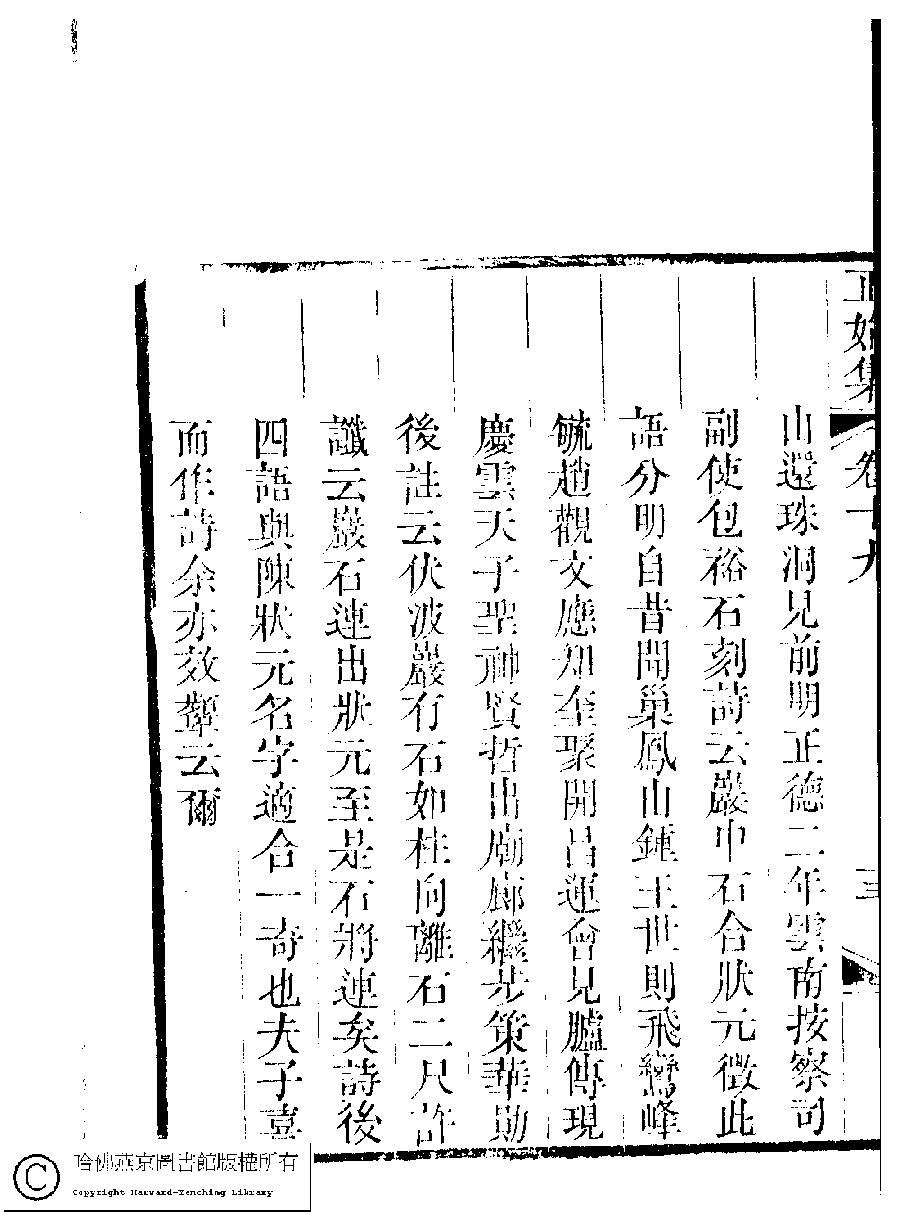 正始集
卷十九
三
山還珠洞見前期正德二年雲南按察司
副使包裕石刻詩云巖中石合狀元徵此
語分明自昔聞巢鳳山鍾王世則飛鸞峰
毓趙觀文應知至聚開昌運會見臚傳現
慶雲天子聖神賢哲出廟廊繼步策華勛
後註云伏波巖有石如柱向離石二尺許
讖云巖石連出狀元至是石將連矣詩後
四語與陳狀元名字適合一奇也夫子喜
而作詩余亦效顰云爾
哈佛燕京圖書館版權所有
Copyright Harvard-Yenching Library